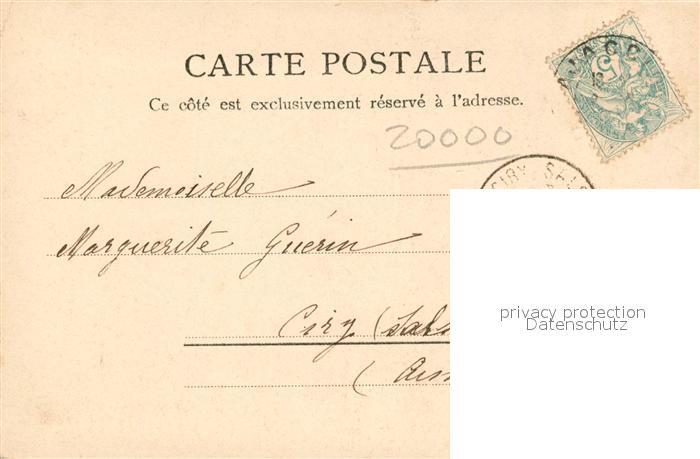 CARTE POSTALE
Ce côté est exclusivement réservé à l'adresse.
20000
AJACC
5
CIRY SALS
Mademoiselle
Marguerite Guérin
Ciry (Sals
(Aisn
privacy protection
Datenschutz